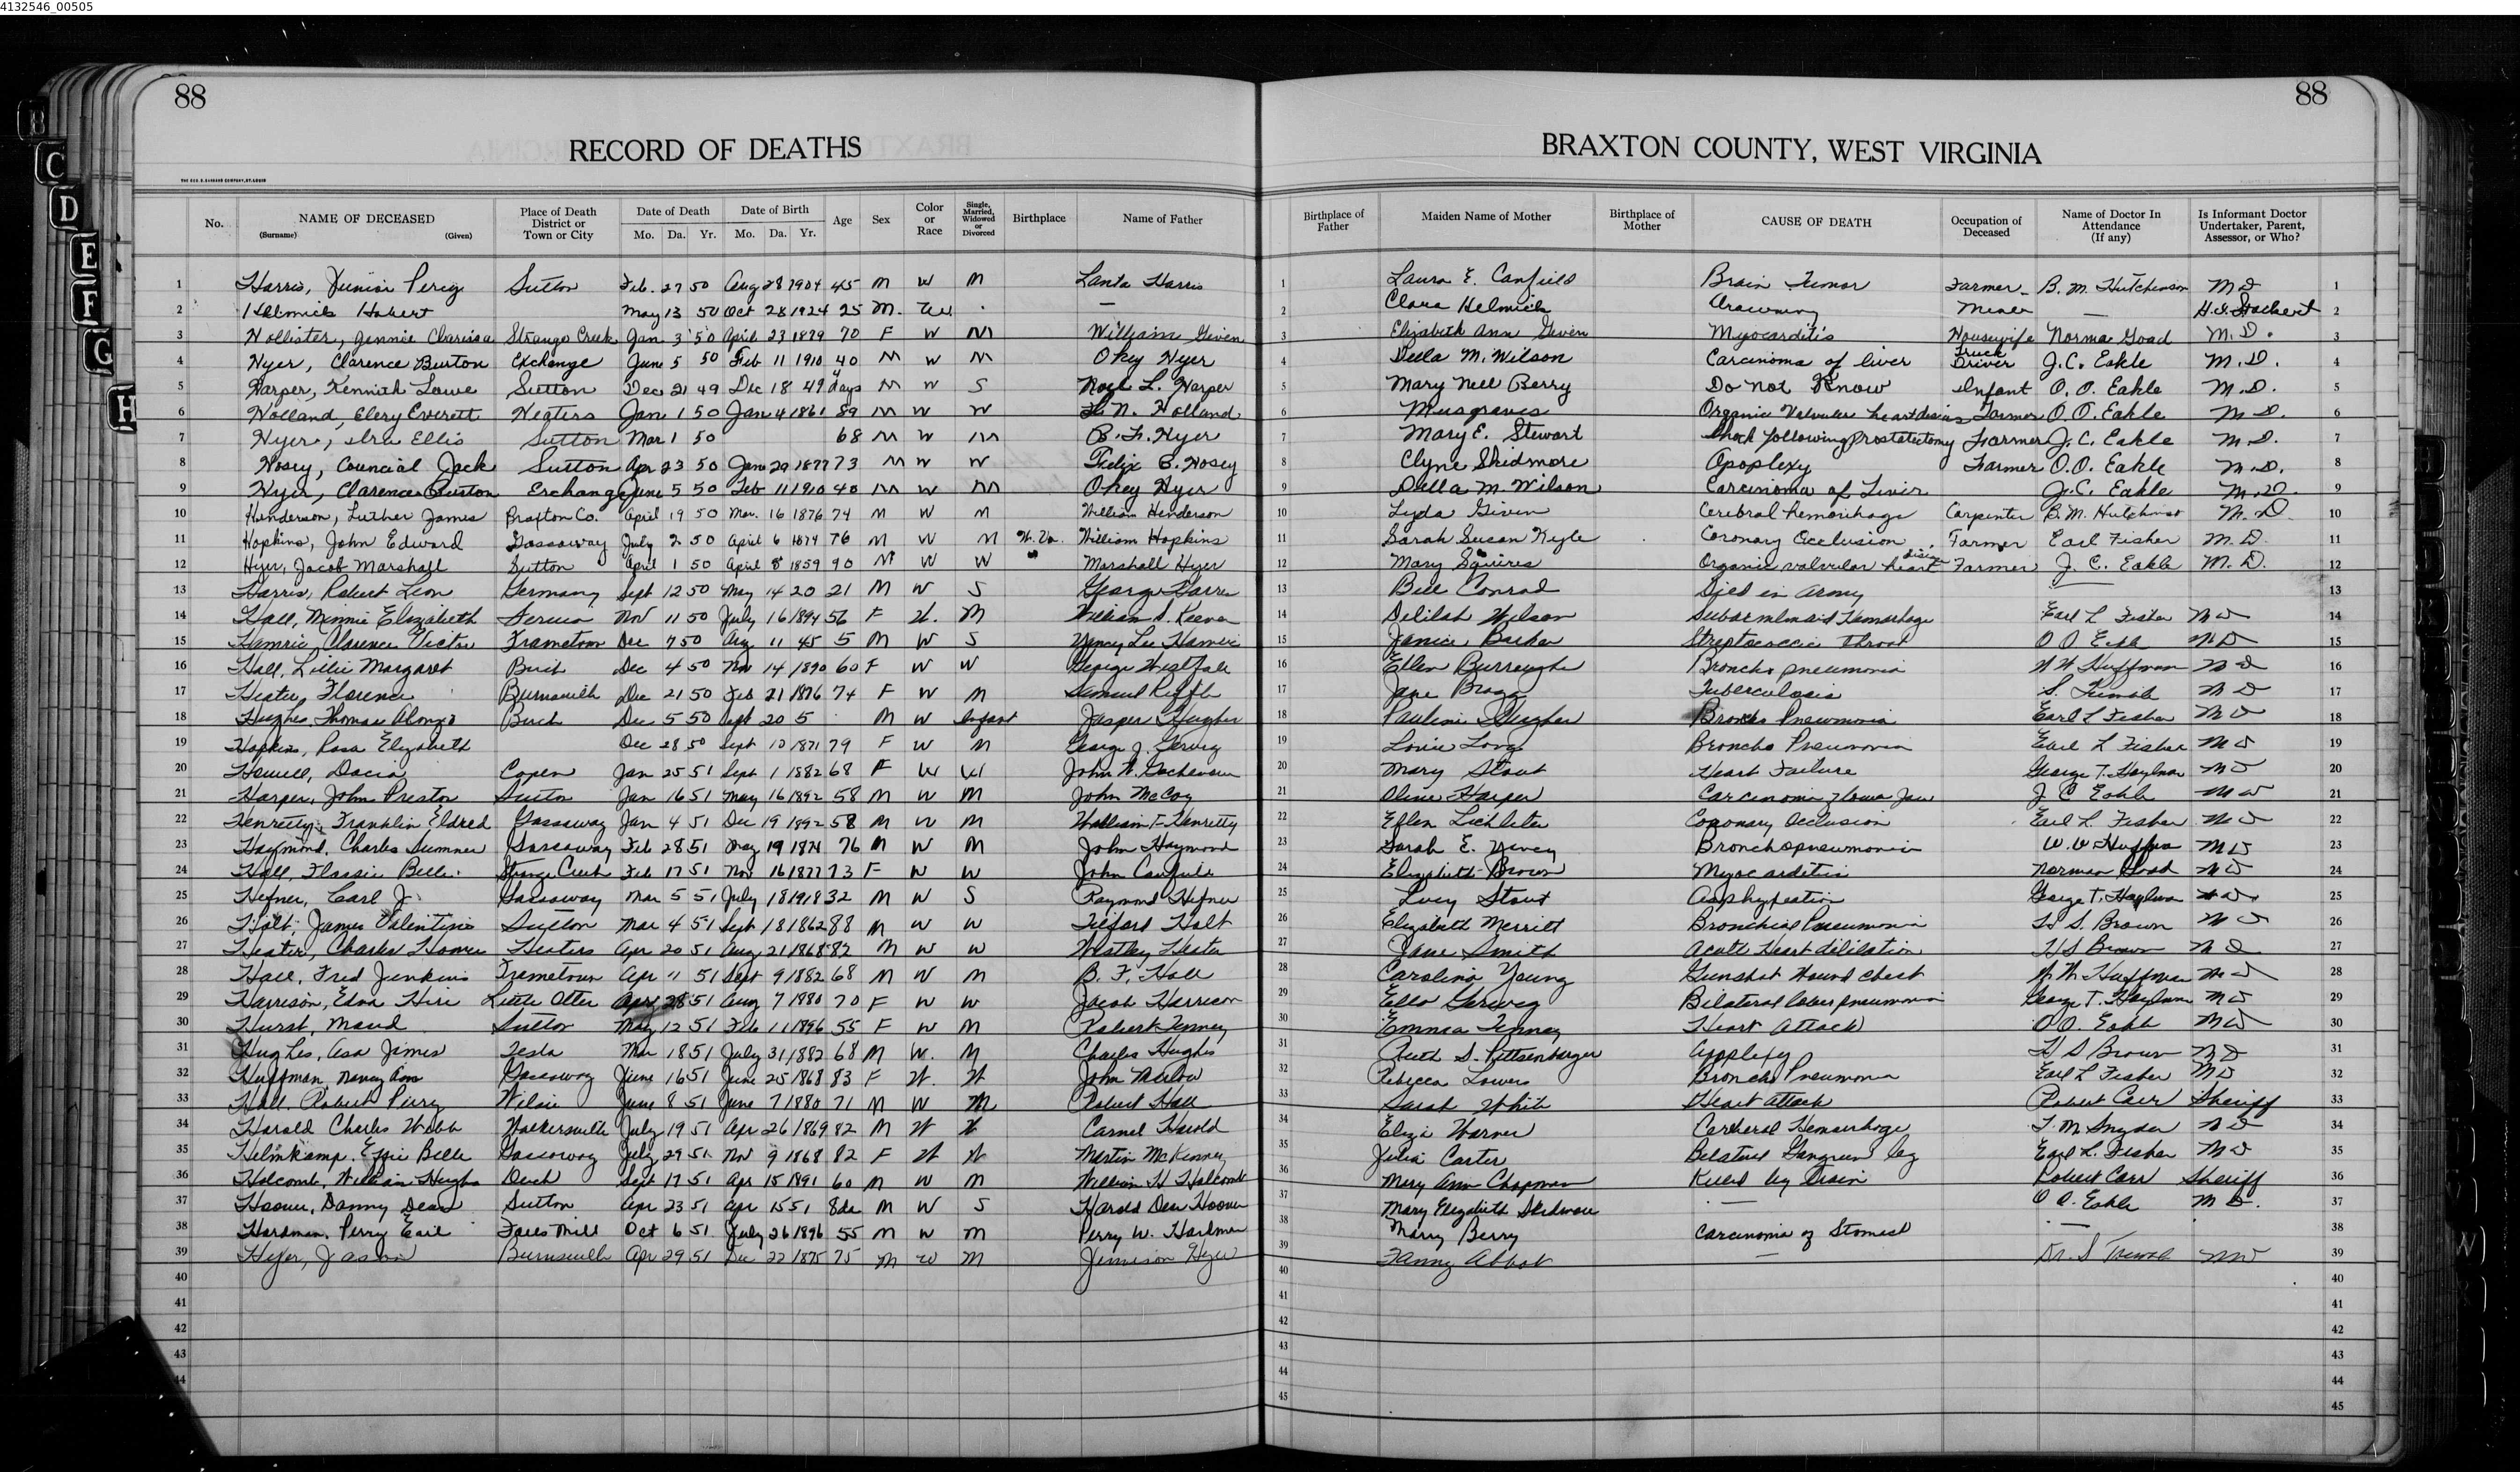 4132546_00505
88
88
RECORD OF DEATHS
BRAXTON COUNTY, WEST VIRGINIA
No. NAME OF DECEASED (Surname) (Given) Place of Death District or Town or City Date of Death Mo. Da. Yr. Date of Birth Mo. Da. Yr. Age Sex Color or Race Single, Married, Widowed or Divorced Birthplace Name of Father Birthplace of Father Maiden Name of Mother Birthplace of Mother CAUSE OF DEATH Occupation of Deceased Name of Doctor In Attendance (If any) Is Informant Doctor Undertaker, Parent, Assessor, or Who?
1 Harris, Junior Percy Sutton Feb. 27 50 Aug 28 1904 45 M W M Lanta Harris 1 Laura E. Canfield Brain Tumor Farmer B. M. Hutchinson M D 1
2 Helmick Hobert May 13 50 Oct 28 1924 25 M. W. 2 Clara Helmick Drowning Miner — 2
3 Hollister, Jennie Clarissa Strange Creek Jan 3 50 April 23 1879 70 F W M William Given 3 Elizabeth Ann Given Myocarditis Housewife Norma Goad M.D. 3
4 Hyer, Clarence Burton Exchange June 5 50 Feb 11 1910 40 M W M Okey Hyer 4 Della M. Wilson Carcinoma of liver Truck Driver J.C. Eakle M.D. 4
5 Harper, Kenneth Lowe Sutton Dec 21 49 Dec 18 49 4 days M W S Noel L. Harper 5 Mary Nell Berry Do not Know Infant O. O. Eakle M.D. 5
6 Holland, Elery Everett Heaters Jan 1 50 Jan 4 1861 89 M W W N. Holland 6 Musgraves Organic Valvular heart Farmer O.O. Eakle M.D. 6
7 Hyer, Ira Ellis Sutton Mar 1 50 68 M W M B. F. Hyer 7 Mary E. Stewart Shock following Prostatectomy Farmer J.C. Eakle M.D. 7
8 Hosey, Councial Jack Sutton Apr 23 50 29 1877 73 M W W Felix B. Hosey 8 Clyne Skidmore Apoplexy Farmer O.O. Eakle M.D. 8
9 Hyer, Clarence Burton Exchange June 5 50 Feb 11 1910 40 M W M Okey Hyer 9 Della M. Wilson Carcinoma of Liver J.C. Eakle M.D. 9
10 Henderson, Luther James Braxton Co. April 19 50 Mar. 16 1876 74 M W M William Henderson 10 Lyda Given Cerebral hemorrhage Carpenter B.M. Hutchinson M.D. 10
11 Hopkins, John Edward Gassaway July 2 50 April 6 1874 76 M W M W. Va. William Hopkins 11 Sarah Susan Kyle Coronary Occlusion Farmer Earl Fisher M.D. 11
12 Hyer, Jacob Marshall Sutton April 1 50 April 8 1859 90 M W W Marshall Hyer 12 Mary Squires Organic valvular heart Farmer J. C. Eakle M.D. 12
13 Harris, Robert Leon Germany Sept 12 50 May 14 20 21 M W S George Harris 13 Bell Conrad Died in Army — 13
14 Hall, Minnie Elizabeth Nov 11 50 July 16 1894 56 F W. M William S. Keener 14 Delilah Wilson Hemorrhage Earl L Fisher M D 14
15 Hamric Clarence Victor Frametown Dec 7 50 Aug 11 45 5 M W S Lee Hamric 15 Janice Barker Streptococcic Throat O O Eakle M D 15
16 Hall, Lillie Margaret Burch Dec 4 50 Nov 14 1890 60 F W W George Westfall 16 Ellen Burroughs Broncho pneumonia W W Huffman M D 16
17 Heater, Florence Burnsville Dec 21 50 Feb 21 1876 74 F W M Samuel Riffle 17 Jane Bragg Tuberculosis M D 17
18 Hughes, Thomas Alonzo Birch Dec 5 50 Sept 20 5 M W Infant Jasper Hughes 18 Pauline Hughes Broncho Pneumonia Earl L Fisher M D 18
19 Hopkins, Rosa Elizabeth Dec 28 50 Sept 10 1871 79 F W M George J. Gerwig 19 Louise Long Broncho Pneumonia Earl L Fisher M D 19
20 Howell, Dacia Copen Jan 25 51 Sept 1 1882 68 F W W John 20 Mary Stout Heart Failure George T. Hoylman M D 20
21 Harper, John Preston Sutton Jan 16 51 May 16 1892 58 M W M John McCoy 21 Oline Harper Carcinoma Jaw J C Eakle M D 21
22 Henretty, Franklin Eldred Gassaway Jan 4 51 Dec 19 1892 58 M W M William F. Henretty 22 Ellen Lichliter Coronary Occlusion Earl L. Fisher M D 22
23 Haymond, Charles Sumner Gassaway Feb 28 51 May 19 1874 76 M W M John Haymond 23 Sarah E. Yancy Bronchopneumonia W. W. Huffman M D 23
24 Hall, Flossie Belle Strange Creek Feb 17 51 Nov 16 1877 73 F W W John Canfield 24 Elizabeth Brown Myocarditis Norman Goad M D 24
25 Hefner, Carl J. Gassaway Mar 5 51 July 18 1918 32 M W S Raymond Hefner 25 Lucy Stout Asphyxiation George T. Hoylman M D 25
26 Holt, James Valentine Sutton Mar 4 51 Sept 18 1862 88 M W W Telford Holt 26 Elizabeth Merritt Bronchial Pneumonia H S. Brown M D 26
27 Heater, Charles Homer Heaters Apr 20 51 Aug 21 1868 82 M W W Westley Heater 27 Jane Smith Acute Heart dililation H S Brown M D 27
28 Hall, Fred Junkins Frametown Apr 11 51 Sept 9 1882 68 M W M B. F. Hall 28 Caroline Young Gunshot Wound chest W. W. Huffman M D 28
29 Harrison, Edna Hire Little Otter Apr 28 51 Aug 7 1880 70 F W W Jacob Harrison 29 Ella Gerwig Bilateral lober pneumonia George T. Hoylman M D 29
30 Hurst, Maud Sutton May 12 51 Feb 11 1896 55 F W M Robert Tenney 30 Emma Tenney Heart Attack O O. Eakle M D 30
31 Hughes, Asa James Tesla Mar 18 51 July 31 1882 68 M W. M Charles Hughes 31 Ruth S. Pittsenbarger Applexy H S Brown M D 31
32 Huffman, Nancy Ann Gassaway June 16 51 June 25 1868 83 F W. W John Marlow 32 Rebecca Lowers Broncho Pneumonia Earl L Fisher M D 32
33 Hall, Robert Perry Wilsie June 8 51 June 7 1880 71 M W M Robert Hall 33 Sarah White Heart Attack Robert Carr Sheriff 33
34 Harold Charles Webb Walkersville July 19 51 Apr 26 1869 82 M W W Carnel Harold 34 Eliza Warner Cerberal Hemorrhage T. M. Snyder M D 34
35 Helmkamp, Effie Belle Gassaway July 29 51 Nov 9 1868 82 F W W Martin McKinney 35 Julia Carter Gangrene leg Earl L. Fisher M D 35
36 Holcomb, William Hughs Sept 17 51 Apr 15 1891 60 M W M William H Holcomb 36 Mary Ann Chapman Killed by Train Robert Carr Sheriff 36
37 Hoover, Danny Dean Sutton Apr 23 51 Apr 15 51 8da M W S Harold Dean Hoover 37 Mary Elizabeth Skidmore — O O. Eakle M D. 37
38 Hardman, Perry Earl Falls Mill Oct 6 51 July 26 1896 55 M W M Perry W. Hardman 38 Mary Berry Carcinoma of Stomach — 38
39 Hyer, Jason Burnsville Apr 29 51 Dec 22 1875 75 M W M Jimison Hyer 39 Fanny Abbot — Dr. S M D 39
40 40 40
41 41 41
42 42 42
43 43 43
44 44 44
45 45
B
C
D
E
F
G
H